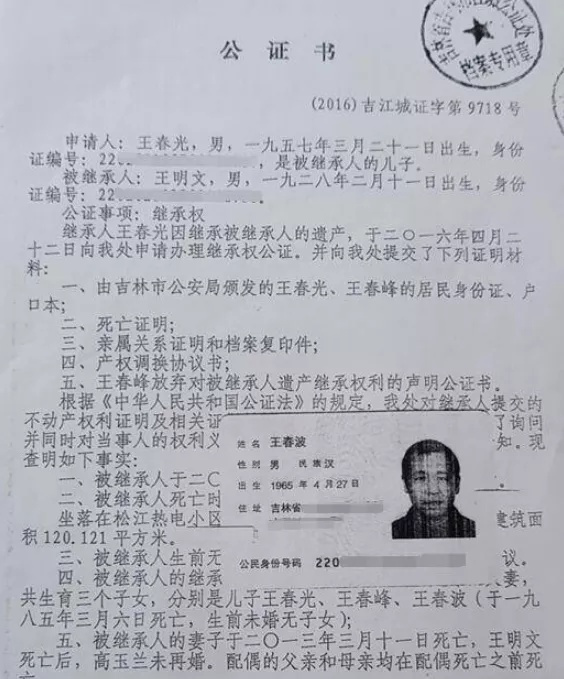 公证书
(2016)吉江城证字第9718号
申请人：王春光，男，一九五七年三月二十一日出生，身份
证编号：220
，是被继承人的儿子。
被继承人：王明文，男，一九二八年二月十一日出生，身份
证编号：
公证事项：继承权
继承人王春光因继承被继承人的遗产，于二〇一六年四月二
十二日向我处申请办理继承权公证。并向我处提交了下列证明材
料：
一、由吉林市公安局颁发的王春光、王春峰的居民身份证、户
口本；
二、死亡证明；
三、亲属关系证明和档案复印件；
四、产权调换协议书；
五、王春峰放弃对被继承人遗产继承权利的声明公证书。
根据《中华人民共和国公证法》的规定，我处对继承人提交的
不动产权利证明及相关证
了询问
并同时对当事人的权利义
知。现
查明如下事实：
一、被继承人于二〇
二、被继承人死亡时
坐落在松江热电小区
建筑面
积120.121平方米。
三、被继承人生前无
议。
四、被继承人的继承
妻，
共生育三个子女，分别是儿子王春光、王春峰、王春波（于一九
八五年三月六日死亡，生前未婚无子女）；
五、被继承人的妻子于二〇一三年三月十一日死亡，王明文
死亡后，高玉兰未再婚。配偶的父亲和母亲均在配偶死亡之前死
姓名 王春波
性别 男 民族汉
出生 1965年4月27日
住址 吉林省
公民身份号码 220
档案专用章